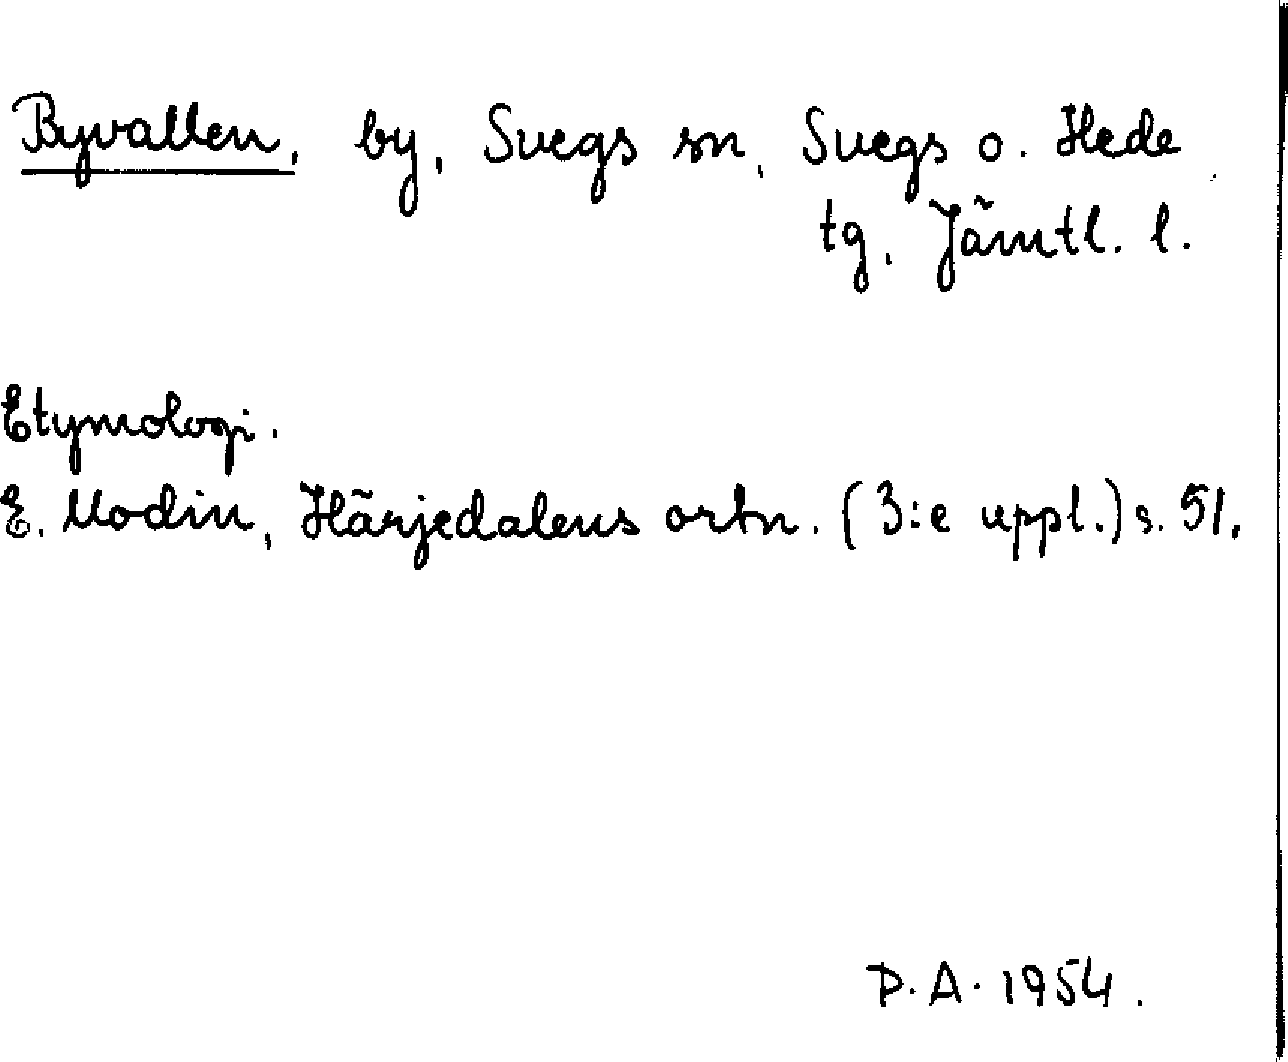 Byvallen, by, Svegs sn, Svegs o. Hede
tg, Jämtl. l.
Etymologi.
E. Modin, Härjedalens ortn. (3:e uppl.) s. 51.
P.A. 1954.